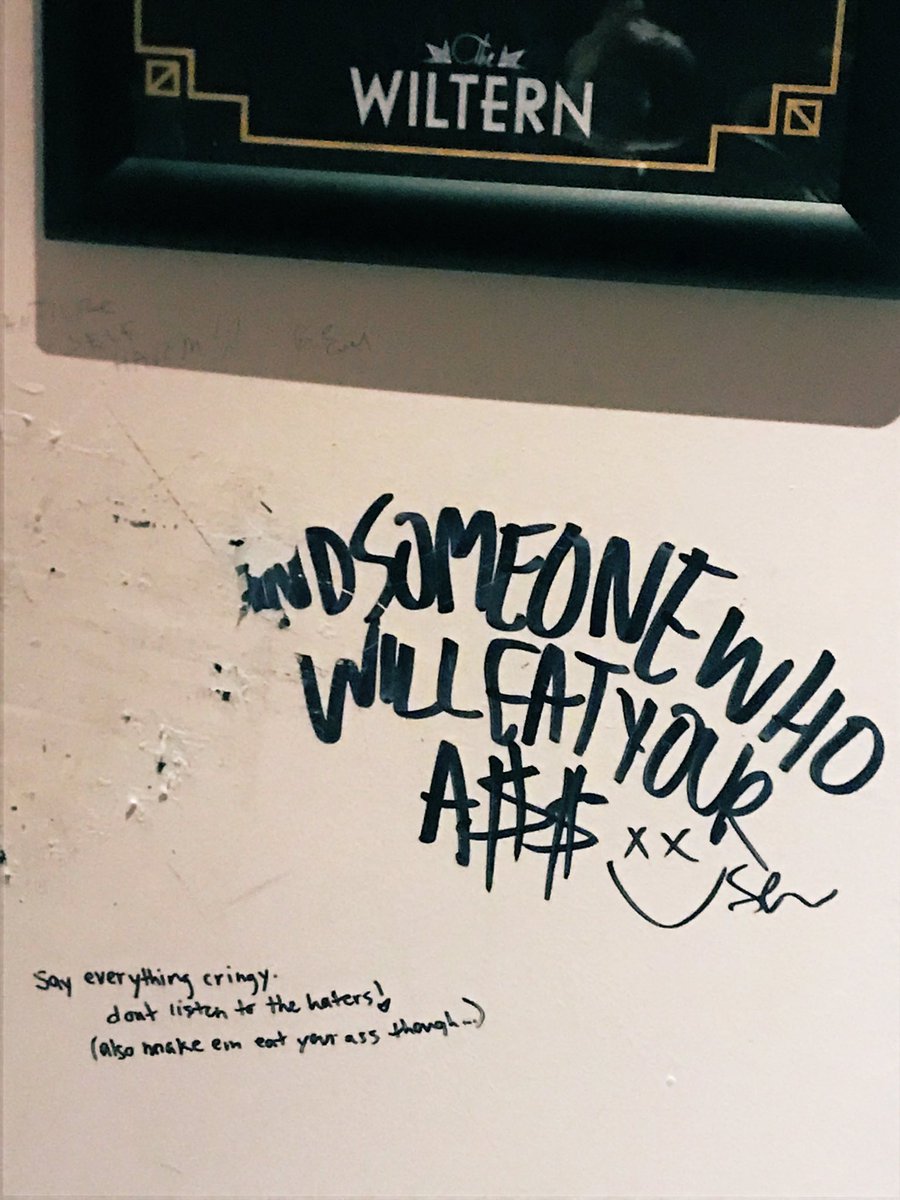 The
WILTERN
FIND SOMEONE WHO
WILL EAT YOUR
A$$
Say everything cringy.
dont listen to the haters!
(also make em eat your ass though...)